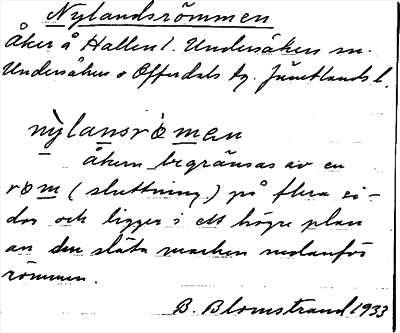 Nylandsrömmen
Åker å Hallen l. Undersåkers sn.
Undersåkers o Offerdals tg. Jämtlands l.
nỳlansrömen
åkern begränsas av en
röm (sluttning) på flera si-
dor och ligger i ett högre plan
än den släta marken nedanför
römmen.
B. Blomstrand 1933